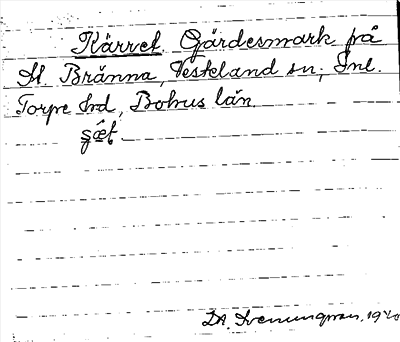 Kärret. Gärdesmark på
St. Bränna, Vesteland sn; Inl.
Torpe hrd, Bohus län.
D.A. Svenungsson, 1920